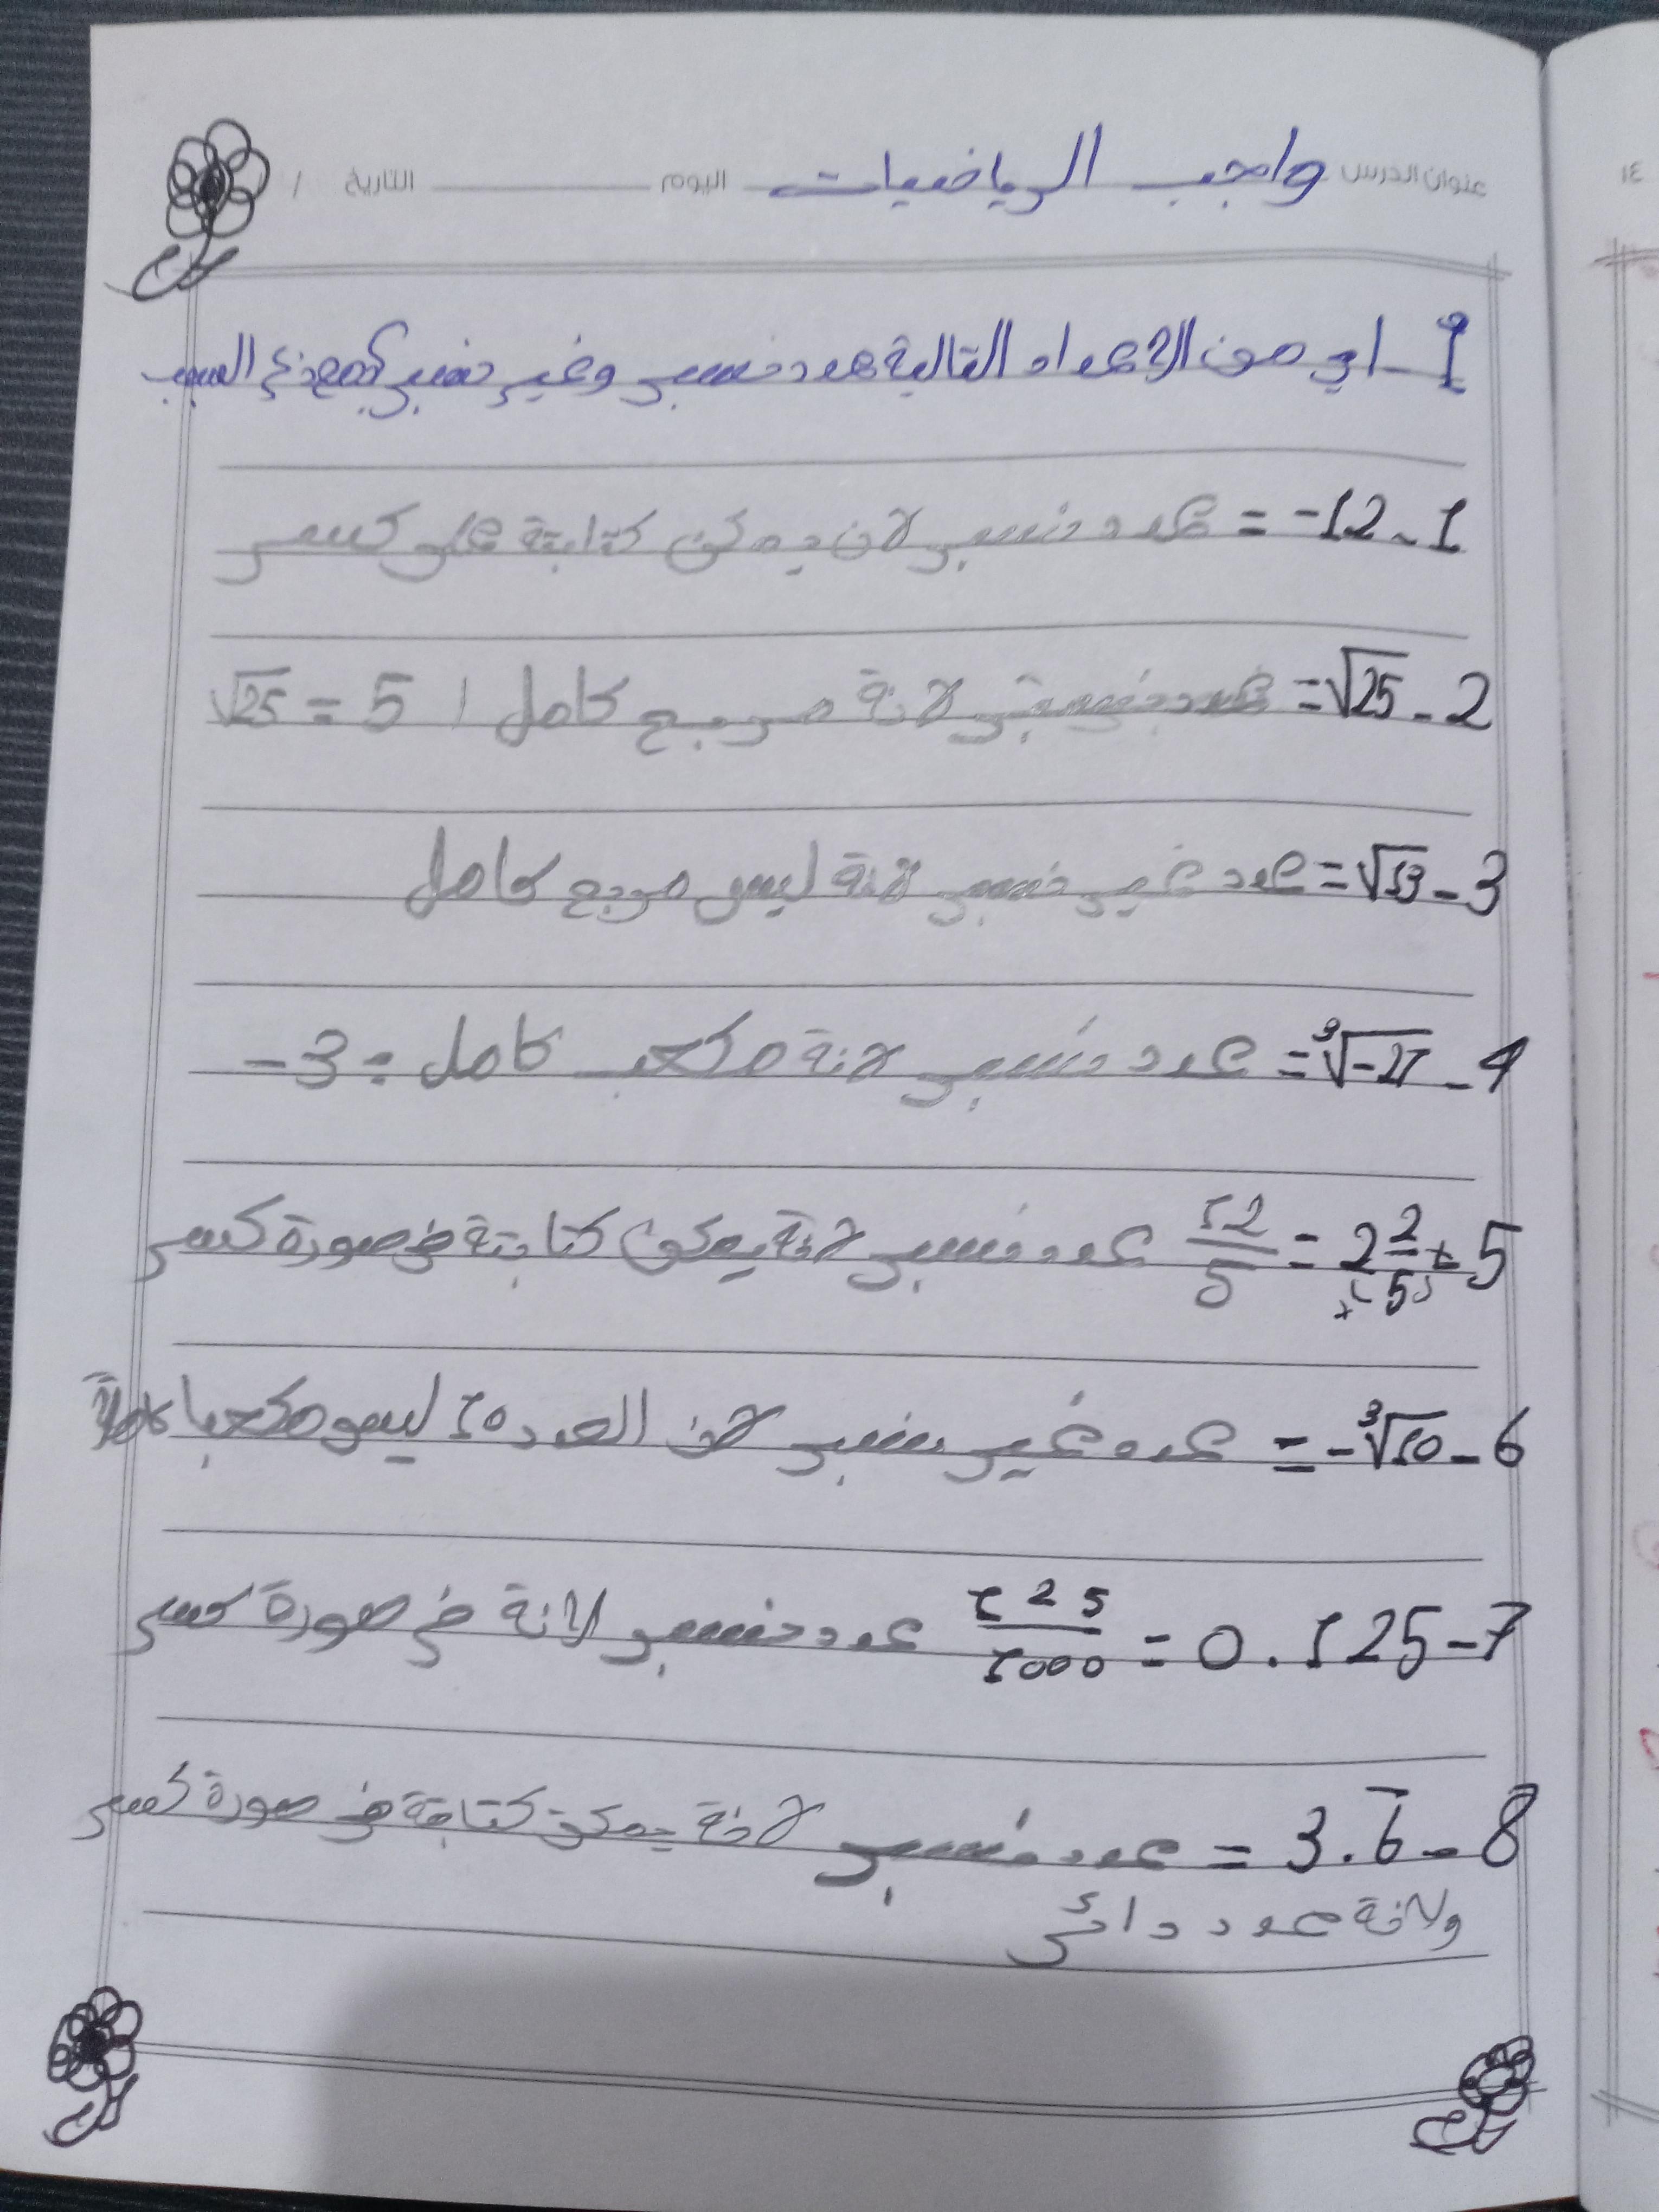 عنوان الدرس واجب الرياضيات اليوم التاريخ /
1- اي من الاعداد التالية عدد نسبي وغير نسبي مع ذكر السبب
1- -12 = عدد نسبي لان يمكن كتابتة على كسر
2- √25 = عدد نسبي لانة مربع كامل / √25 = 5
3- √13 = عدد غير نسبي لانة ليس مربع كامل
4- ∛-27 = عدد نسبي لانة مكعب كامل = -3
5- 2 2/5 = 12/5 عدد نسبي لانة يمكن كتابتة في صورة كسر
6- -∛10 = عدد غير نسبي لان العدد 10 ليس مكعبا كاملاً
7- 0.125 = 125/1000 عدد نسبي لانة في صورة كسر
8- 3.6̅ = عدد نسبي لانة يمكن كتابتة في صورة كسر
ولانة عدد دائي
١٤